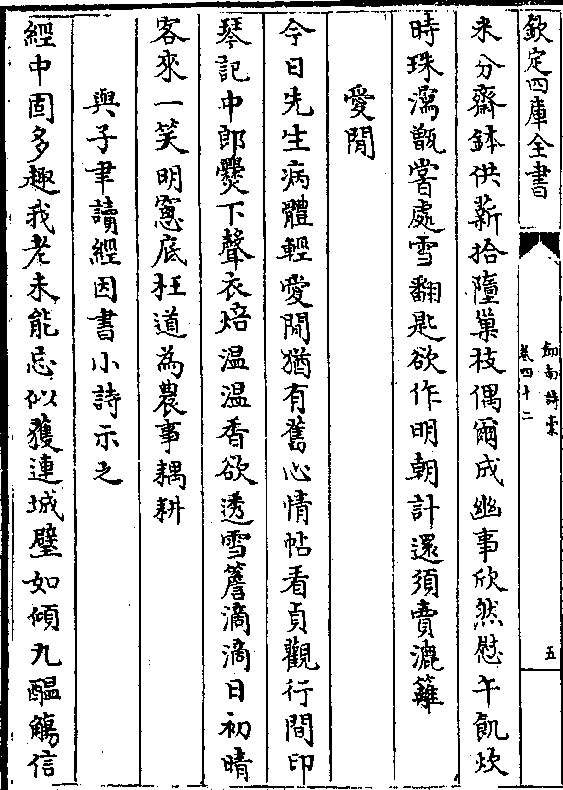 欽定四庫全書
劎南詩稾
卷四十二
五
米分齋鉢供薪拾墮巢枝偶爾成幽事欣然慰午飢炊
時珠瀉甑嘗處雪翻匙欲作明朝計還須賣漉籬
愛閒
今日先生病體輕愛閒猶有舊心情帖看貞觀行間印
琴記中郎爨下聲衣焙温温香欲透雪簷滴滴日初晴
客來一笑明窻底枉道為農事耦耕
與子聿讀經因書小詩示之
經中固多趣我老未能忘似獲連城璧如傾九醖觴信